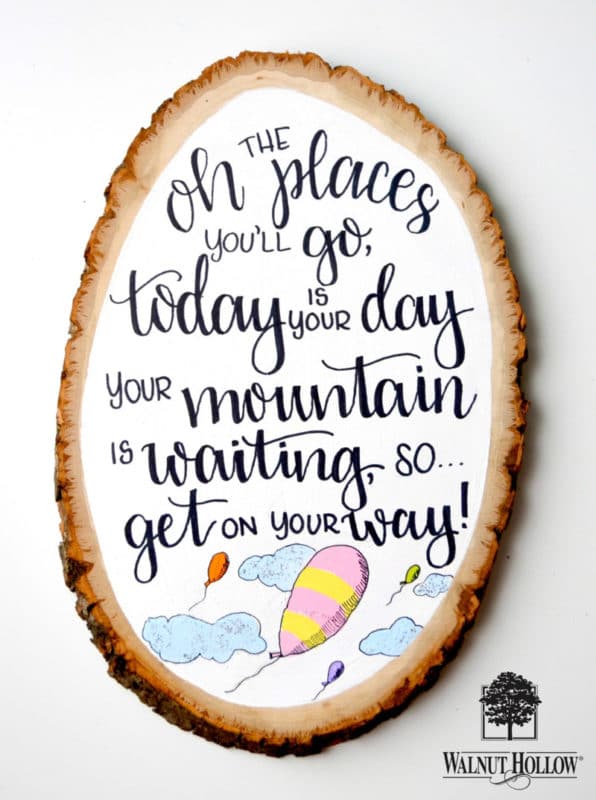 oh THE places
YOU'LL go,
today IS YOUR day
YOUR mountain
IS waiting, SO...
get ON YOUR way!
WALNUT HOLLOW®